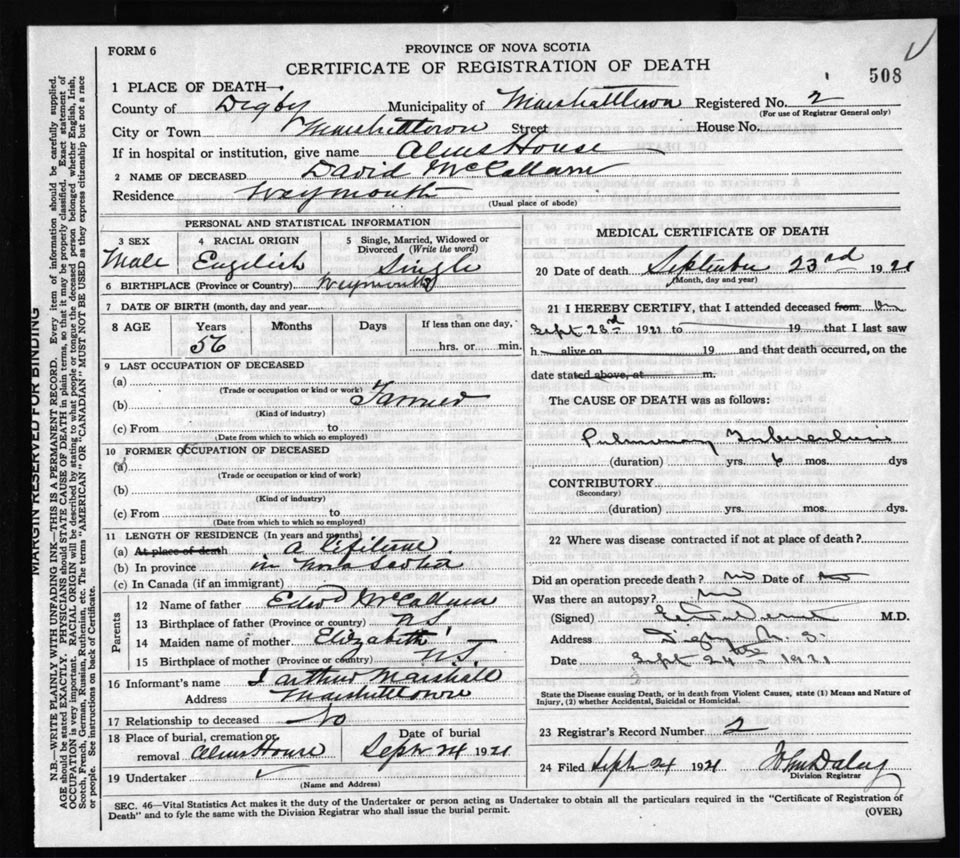 FORM 6
PROVINCE OF NOVA SCOTIA
CERTIFICATE OF REGISTRATION OF DEATH
508
1 PLACE OF DEATH—
County of Digby Municipality of Marshalltown Registered No. 2
(For use of Registrar General only)
City or Town Marshalltown Street House No.
If in hospital or institution, give name Alms House
2 NAME OF DECEASED David McCallum
Residence Weymouth
(Usual place of abode)
PERSONAL AND STATISTICAL INFORMATION
3 SEX Male
4 RACIAL ORIGIN English
5 Single, Married, Widowed or Divorced (Write the word) Single
6 BIRTHPLACE (Province or Country) Weymouth
7 DATE OF BIRTH (month, day and year)
8 AGE Years Months Days If less than one day,
56 hrs. or min.
9 LAST OCCUPATION OF DECEASED
(a)
(Trade or occupation or kind or work)
(b)
(Kind of industry)
(c) From to
(Date from which to which so employed)
10 FORMER OCCUPATION OF DECEASED
(a)
(Trade or occupation or kind of work)
(b)
(Kind of industry)
(c) From to
(Date from which to which so employed)
11 LENGTH OF RESIDENCE (In years and months)
(a) At place of death a lifetime
(b) In province in Nova Scotia
(c) In Canada (if an immigrant)
Parents
12 Name of father Edwd McCallum
13 Birthplace of father (Province or country) N S
14 Maiden name of mother Elizabeth
15 Birthplace of mother (Province or country) N S
16 Informant's name J Arthur Marshall
Address Marshalltown
17 Relationship to deceased No
18 Place of burial, cremation or removal Alms House
Date of burial Sept 24 1921
19 Undertaker
(Name and Address)
MEDICAL CERTIFICATE OF DEATH
20 Date of death September 23rd 1921
(Month, day and year)
21 I HEREBY CERTIFY, that I attended deceased from On
Sept 23rd 1921 to 19 that I last saw
h alive on 19 and that death occurred, on the
date stated above, at m.
The CAUSE OF DEATH was as follows:
Pulmonary Tuberculosis
(duration) yrs. 6 mos. dys
CONTRIBUTORY
(Secondary)
(duration) yrs. mos. dys.
22 Where was disease contracted if not at place of death?
Did an operation precede death? no Date of no
Was there an autopsy? no
(Signed) M.D.
Address Digby N. S.
Date Sept 24th 1921
State the Disease causing Death, or in death from Violent Causes, state (1) Means and Nature of
Injury, (2) whether Accidental, Suicidal or Homicidal.
23 Registrar's Record Number 2
24 Filed Sept 24 1921
Division Registrar
SEC. 46—Vital Statistics Act makes it the duty of the Undertaker or person acting as Undertaker to obtain all the particulars required in the "Certificate of Registration of
Death" and to fyle the same with the Division Registrar who shall issue the burial permit.
(OVER)
MARGIN RESERVED FOR BINDING
N.B.—WRITE PLAINLY WITH UNFADING INK—THIS IS A PERMANENT RECORD. Every item of information should be carefully supplied.
AGE should be stated EXACTLY. PHYSICIANS should STATE CAUSE OF DEATH in plain terms, so that it may be properly classified. Exact statement of
OCCUPATION is very important. RACIAL ORIGIN will be described by stating to what people or tongue the deceased person belonged, whether English, Irish,
Scotch, French, German, Russian, Ruthenian, etc. The terms "AMERICAN" OR "CANADIAN" MUST NOT BE USED as they express citizenship but not a race
or people. See instructions on back of Certificate.